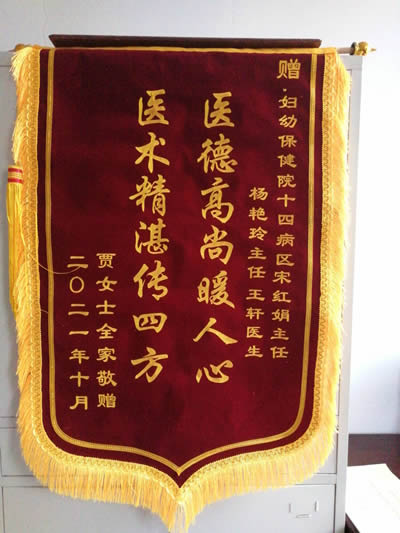 赠·妇幼保健院十四病区宋红娟主任
杨艳玲主任 王轩医生
医德高尚暖人心
医术精湛传四方
贾女士全家敬赠
二〇二一年十月